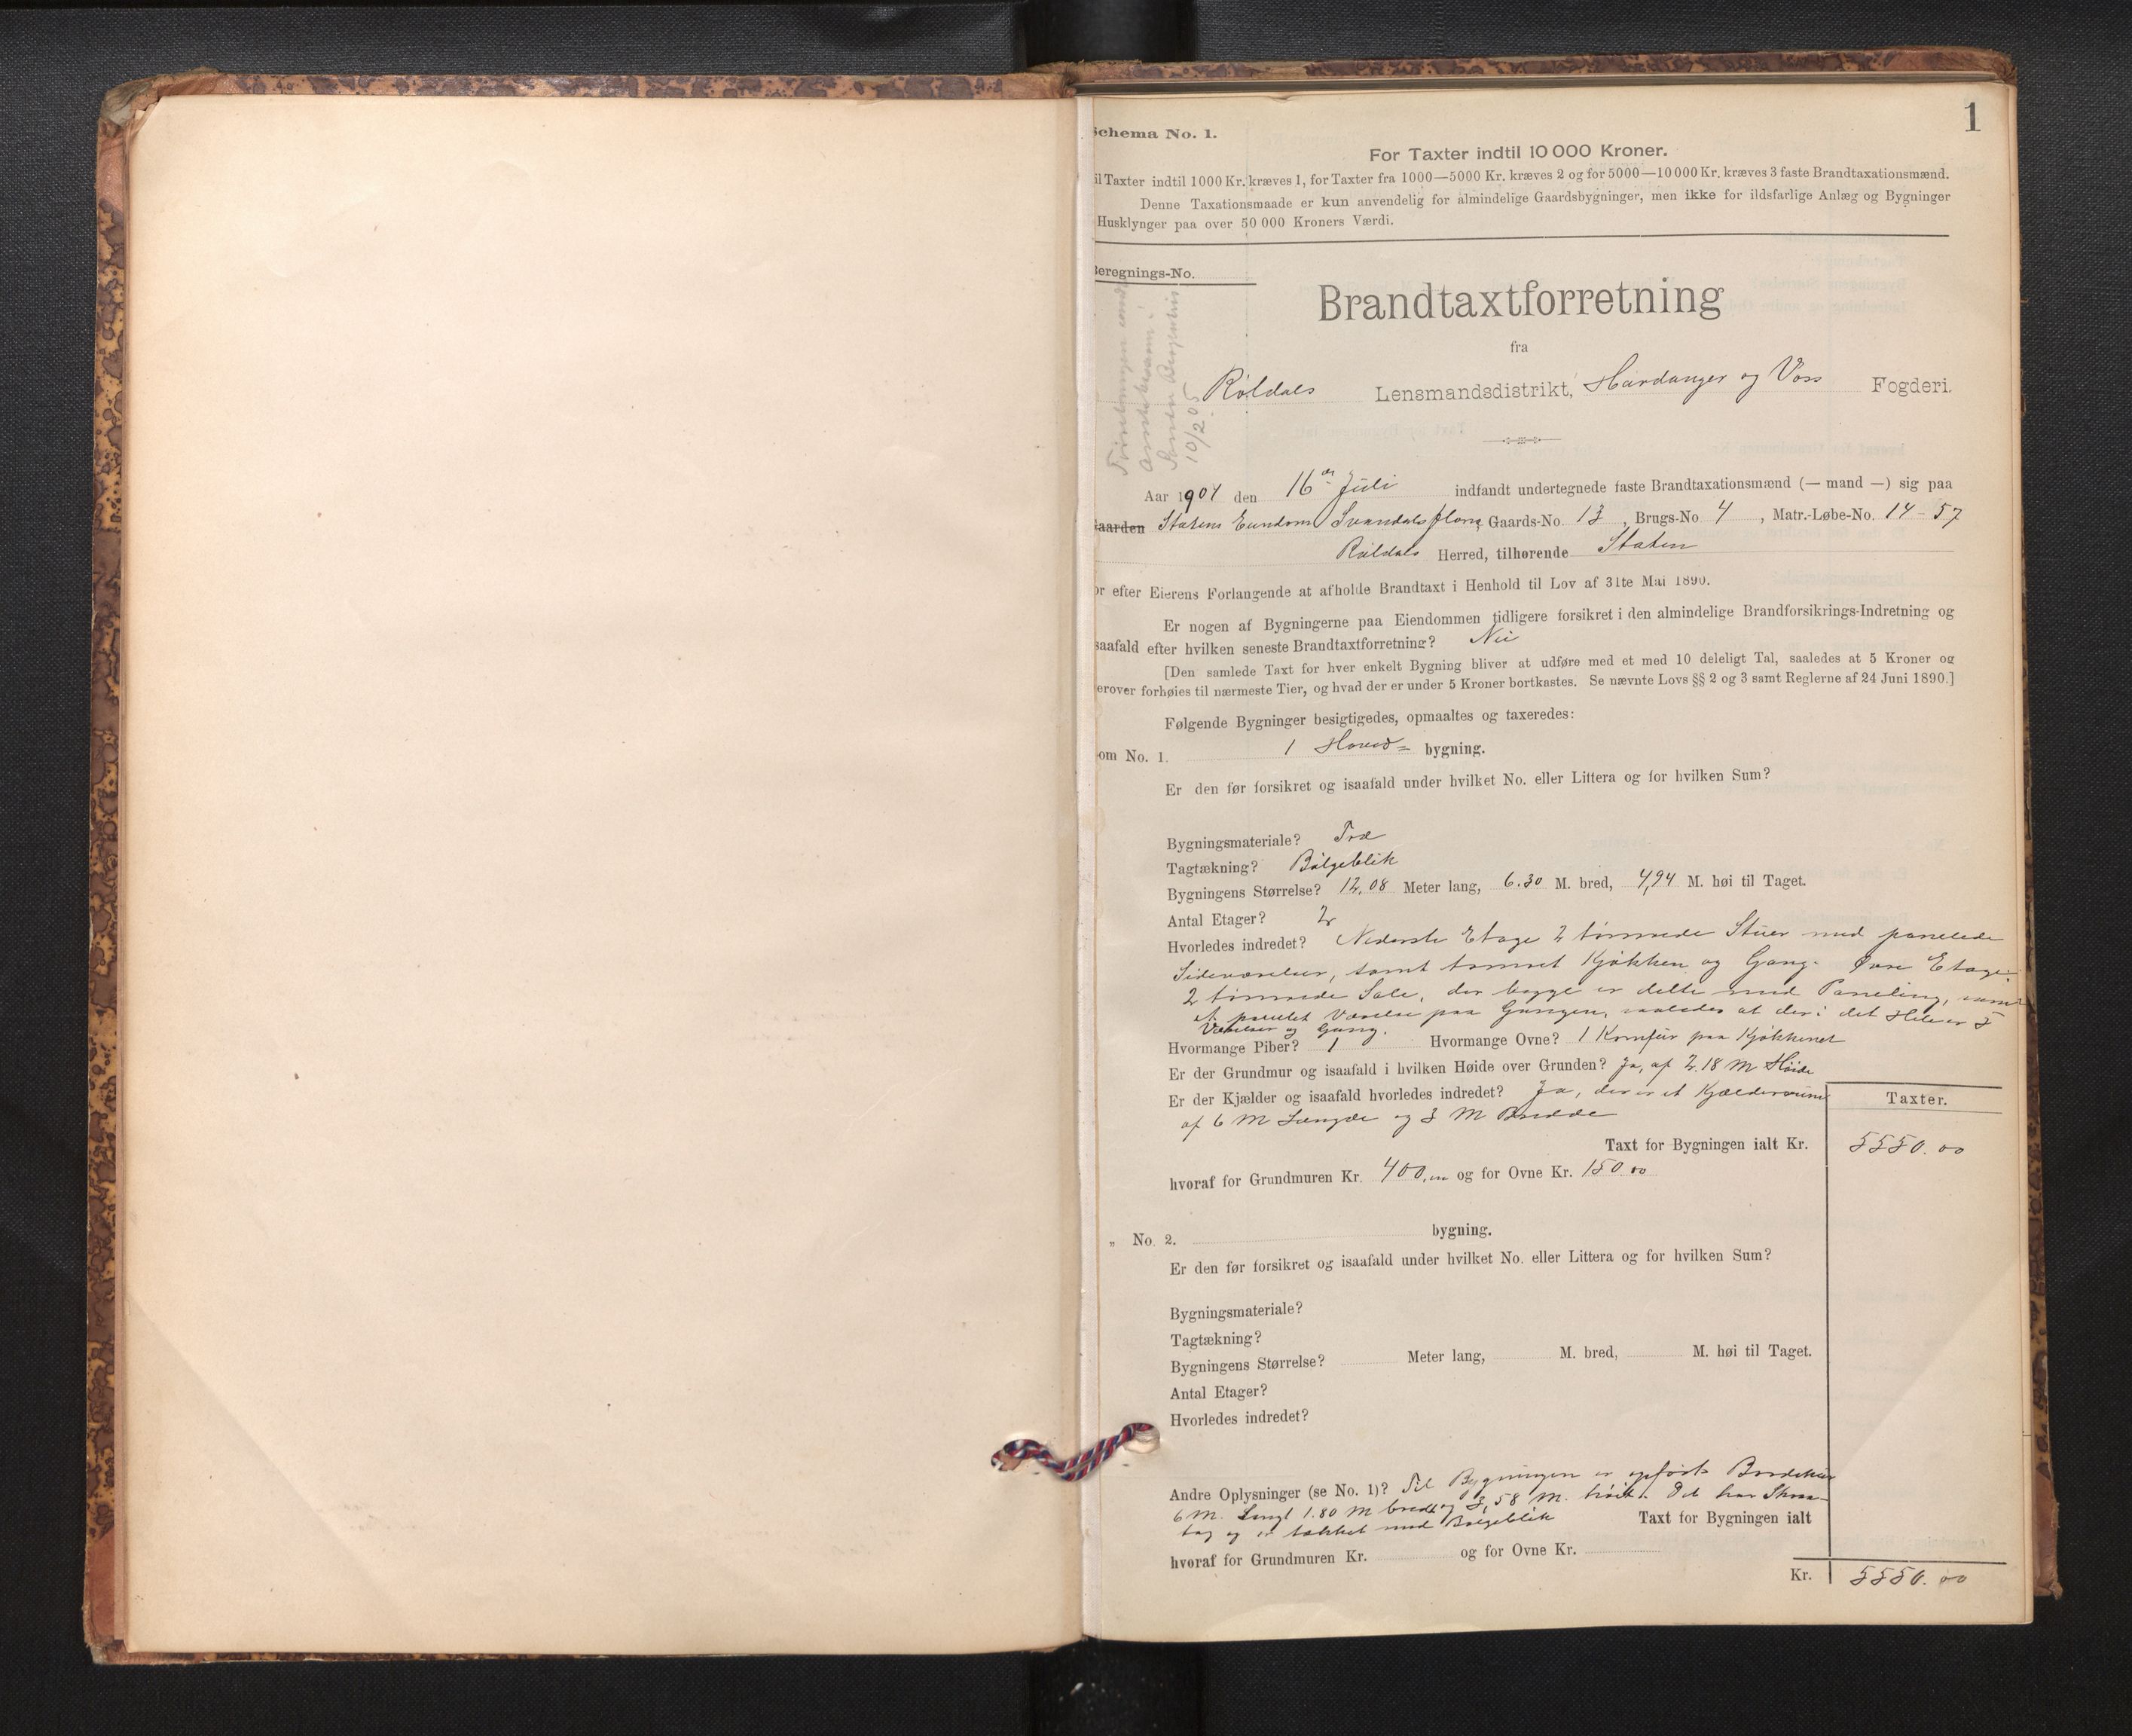 1
Schema No. 1.
For Taxter indtil 10 000 Kroner.
il Taxter indtil 1000 Kr. kræves 1, for Taxter fra 1000—5000 Kr. kræves 2 og for 5000—10 000 Kr. kræves 3 faste Brandtaxationsmænd.
Denne Taxationsmaade er kun anvendelig for almindelige Gaardsbygninger, men ikke for ildsfarlige Anlæg og Bygninger
Husklynger paa over 50 000 Kroners Værdi.
Beregnings-No.
Brandtaxtforretning
fra
Röldals Lensmandsdistrikt, Hardanger og Voss Fogderi.
10/2 05
Aar 1904 den 16de Juli indfandt undertegnede faste Brandtaxationsmænd (— mand —) sig paa
Gaarden Statens Eiendom Svandalsflona Gaards-No. 13, Brugs-No 4, Matr.-Løbe-No. 14-57
Röldals Herred, tilhørende Staten
or efter Eierens Forlangende at afholde Brandtaxt i Henhold til Lov af 31te Mai 1890.
Er nogen af Bygningerne paa Eiendommen tidligere forsikret i den almindelige Brandforsikrings-Indretning og
saafald efter hvilken seneste Brandtaxtforretning? Nei
[Den samlede Taxt for hver enkelt Bygning bliver at udføre med et med 10 deleligt Tal, saaledes at 5 Kroner og
erover forhøies til nærmeste Tier, og hvad der er under 5 Kroner bortkastes. Se nævnte Lovs §§ 2 og 3 samt Reglerne af 24 Juni 1890.]
Følgende Bygninger besigtigedes, opmaaltes og taxeredes:
om No. 1. 1 Hoved= bygning.
Er den før forsikret og isaafald under hvilket No. eller Littera og for hvilken Sum?
Bygningsmateriale? Træ
Tagtækning? Bölgeblik
Bygningens Størrelse? 12,08 Meter lang, 6.30 M. bred, 4,94 M. høi til Taget.
Antal Etager? 2
Hvorledes indredet? Nederste Etage 2 tömrede Stuer med panelede
Sideværelser, samt tömret Kjökken og Gang. Övre Etage:
2 tömrede Sale, der begge er delte med Paneling, samt
et panelet Værelse paa Gangen, saaledes at der i det Hele er 5
Værelser og Gang.
Hvormange Piber? 1 Hvormange Ovne? 1 Komfür paa Kjökkenet
Er der Grundmur og isaafald i hvilken Høide over Grunden? Ja, af 2.18 M Höide
Er der Kjælder og isaafald hvorledes indredet? Ja, der er et Kjælderrum
af 6 M Længde og 3 M Bredde
Taxter.
Taxt for Bygningen ialt Kr. 5550.00
hvoraf for Grundmuren Kr. 400,00 og for Ovne Kr. 150.00
„ No. 2. bygning.
Er den før forsikret og isaafald under hvilket No. eller Littera og for hvilken Sum?
Bygningsmateriale?
Tagtækning?
Bygningens Størrelse? Meter lang, M. bred, M. høi til Taget.
Antal Etager?
Hvorledes indredet?
Andre Oplysninger (se No. 1)? Til Bygningen er opfört
6 M. Langt 1.80 M bredt og 3,58 M. höit. Det har Skraa-
tag og er tækket med Bölgeblik Taxt for Bygningen ialt
hvoraf for Grundmuren Kr. og for Ovne Kr.
Kr. 5550.00